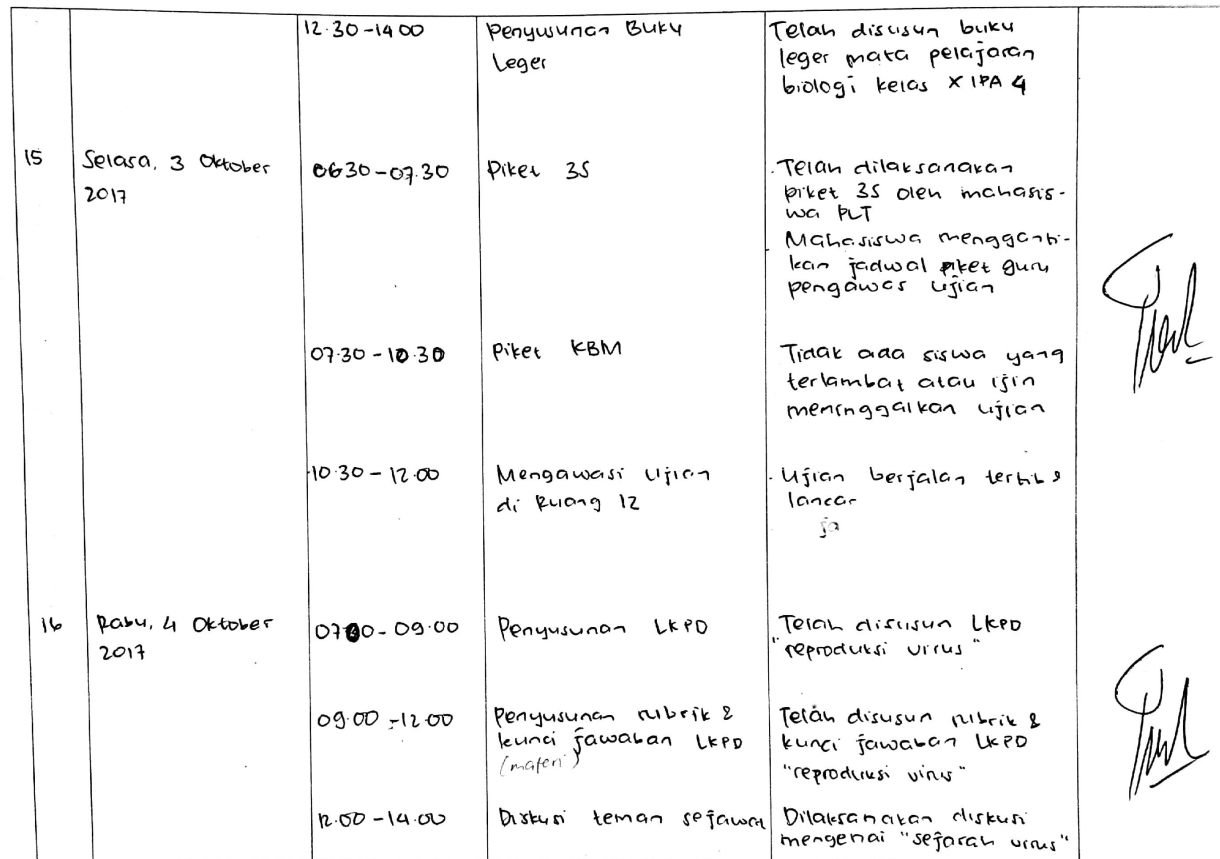 12.30-14.00 Penyusunan Buku Telah disusun buku
Leger leger mata pelajaran
biologi kelas X IPA 4
15 Selasa, 3 Oktober 06.30-07.30 Piket 3S Telah dilaksanakan
2017 piket 3S oleh mahasis-
wa PLT
Mahasiswa mengganti-
kan jadwal piket guru
pengawas ujian
07.30-10.30 Piket KBM Tidak ada siswa yang
terlambat atau ijin
meninggalkan ujian
10.30-12.00 Mengawasi Ujian Ujian berjalan tertib &
di Ruang 12 lancar
ja
16 Rabu, 4 Oktober 07.00-09.00 Penyusunan LKPD Telah disusun LKPD
2017 "reproduksi virus"
09.00-12.00 Penyusunan rubrik & Telah disusun rubrik &
kunci jawaban LKPD kunci jawaban LKPD
(materi) "reproduksi virus"
12.00-14.00 Diskusi teman sejawat Dilaksanakan diskusi
mengenai "sejarah virus"